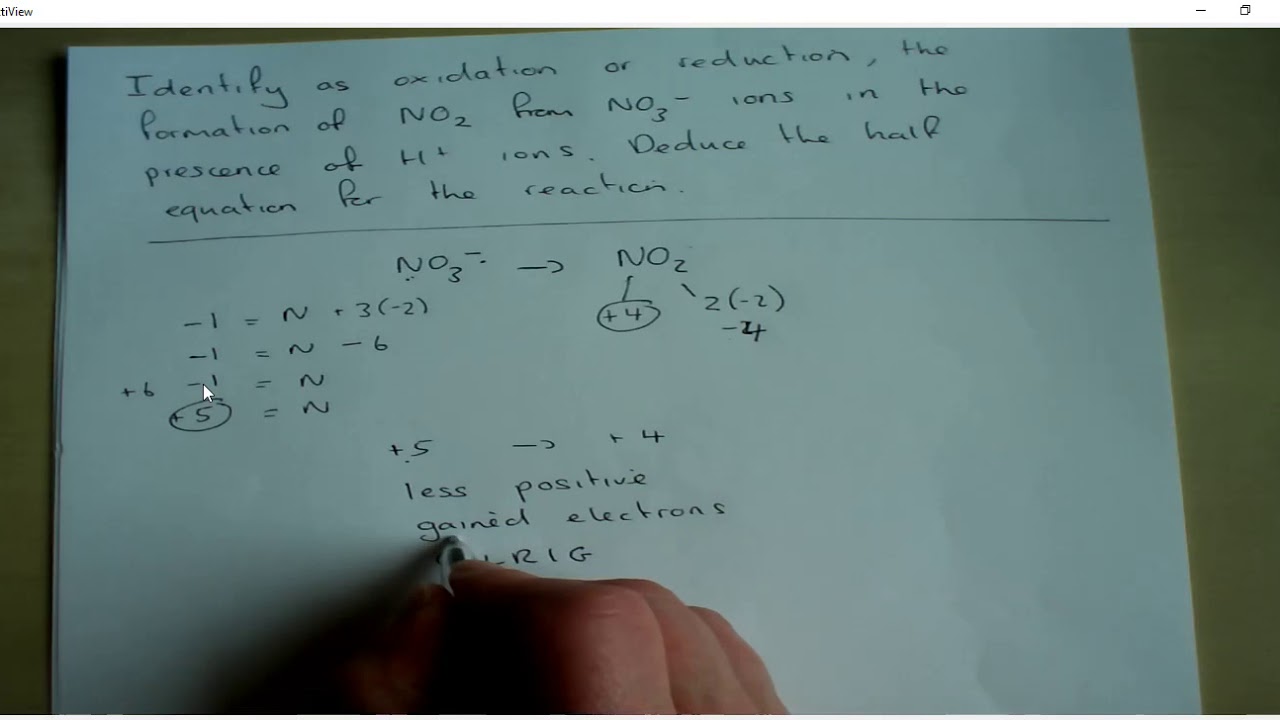 tiView
Identify as oxidation or reduction, the
formation of NO₂ from NO₃⁻ ions in the
prescence of H⁺ ions. Deduce the half
equation for the reaction.
NO₃⁻ → NO₂
-1 = N + 3(-2)
+4 2(-2)
-4
-1 = N - 6
+6 -1 = N
+5 = N
+5 → +4
less positive
gained electrons
LRIG